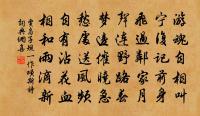 游魂自相叫
寧復記前身
飛過鄰家月
聲連野路春
夢邊催曉急
愁處送風頻
自有沾花血
相和雨滴新
賈島子規一作項斯詩
詞典網喜